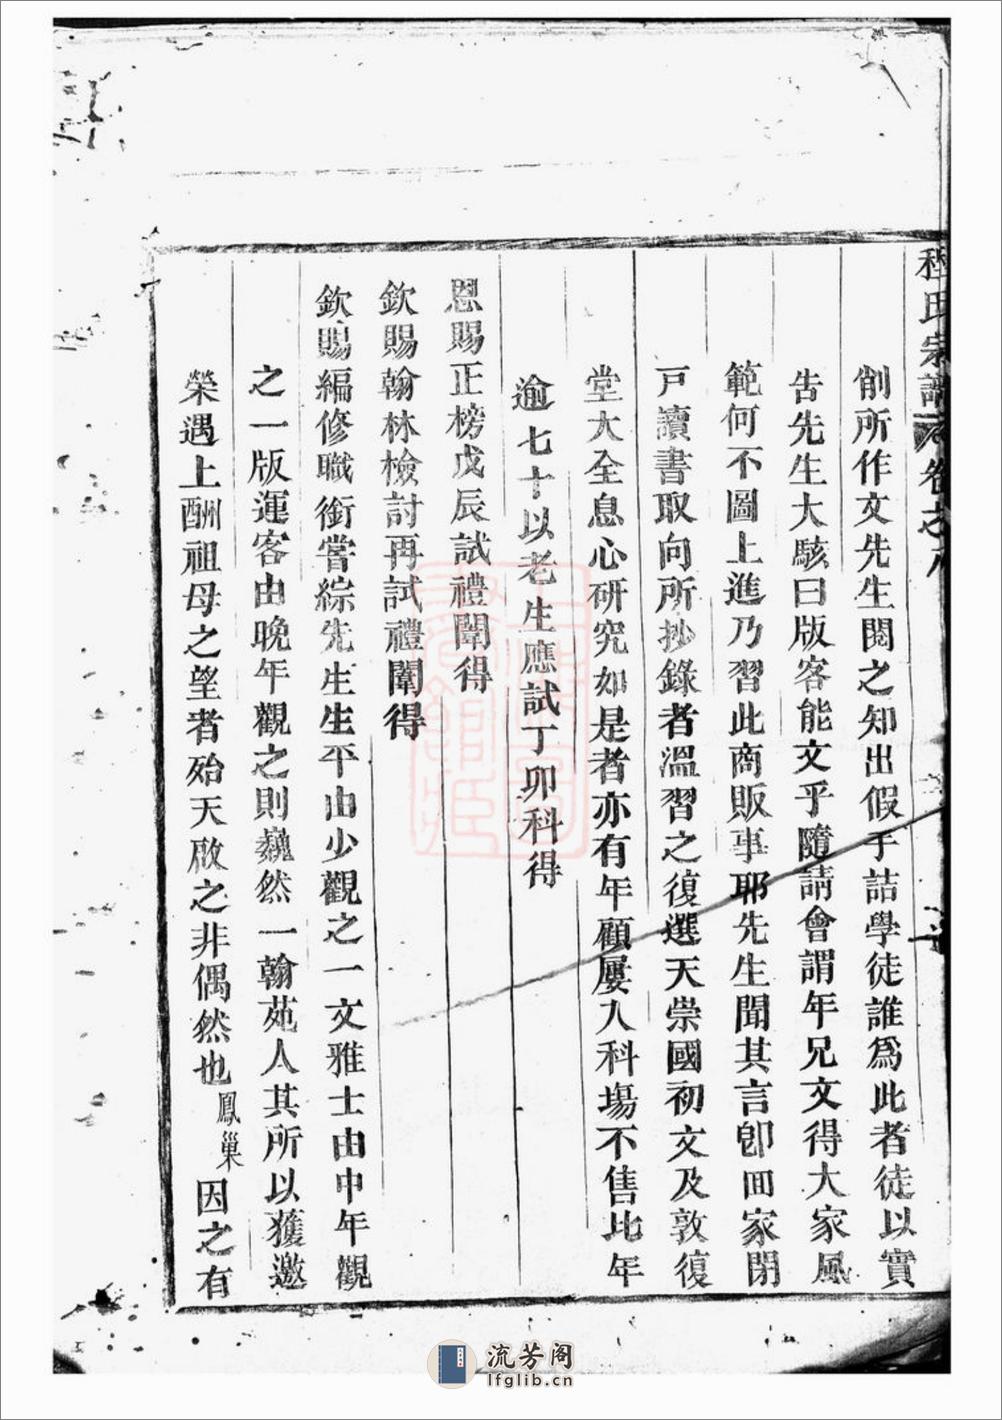 程氏宗譜 卷之八
削所作文先生閱之知出假手詰學徒誰爲此者徒以實
告先生大駭曰版客能文乎隨請會謂年兄文得大家風
範何不圖上進乃習此商販事耶先生聞其言卽回家閉
戸讀書取向所抄錄者溫習之復選天崇國初文及敦復
堂大全息心研究如是者亦有年顧屢入科場不售比年
逾七十以老生應試丁卯科得
恩賜正榜戊辰試禮闈得
欽賜翰林檢討再試禮闈得
欽賜編修職銜嘗綜先生生平由少觀之一文雅士由中年觀
之一版運客由晚年觀之則巍然一翰苑人其所以獲邀
榮遇上酬祖母之望者殆天啟之非偶然也鳳巢因之有
流芳阁
lfglib.cn